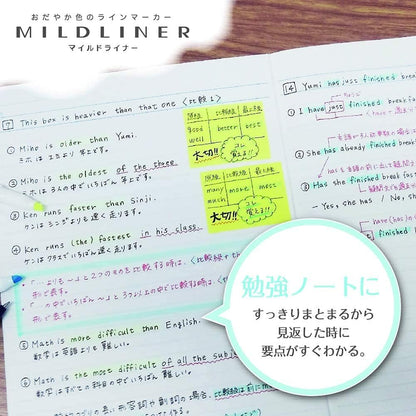 おだやか色のラインマーカー
MILDLINER
マイルドライナー
7 This box is heavier than that one 〈比較1〉
① Miho is older than Yumi.
ミホは ユミより 年上です。
② Miho is the oldest of the three.
ミホは 3人の中でいちばん 年上です。
③ Ken runs faster than Shinji.
ケンは シンジよりも 速く 走ります。
④ Ken runs (the) fastest in his class.
ケンは クラスで いちばん 速く 走ります。
原級 比較級 最上級
good better best
well
大切!! コレ覚える!!
原級 比較級 最上級
many more most
much
大切!! コレ覚える!!
・「…よりも〜」と2つのものを比較する時は、
形で表す。
・「…の中でいちばん〜」と3つ以上の中で比較する時は、
形で表す。
⑤ Math is more difficult than English.
数学は 英語よりも 難しい。
⑥ Math is the most difficult of all the subje
数学は すべての 科目の中で いちばん 難しい。
14 Yumi has just finished break
① I have just finished brea
② She has already finished b
③ Has she finished break
- Yes, she has. / No, sh
勉強ノートに
すっきりまとまるから
見返した時に
要点がすぐわかる。